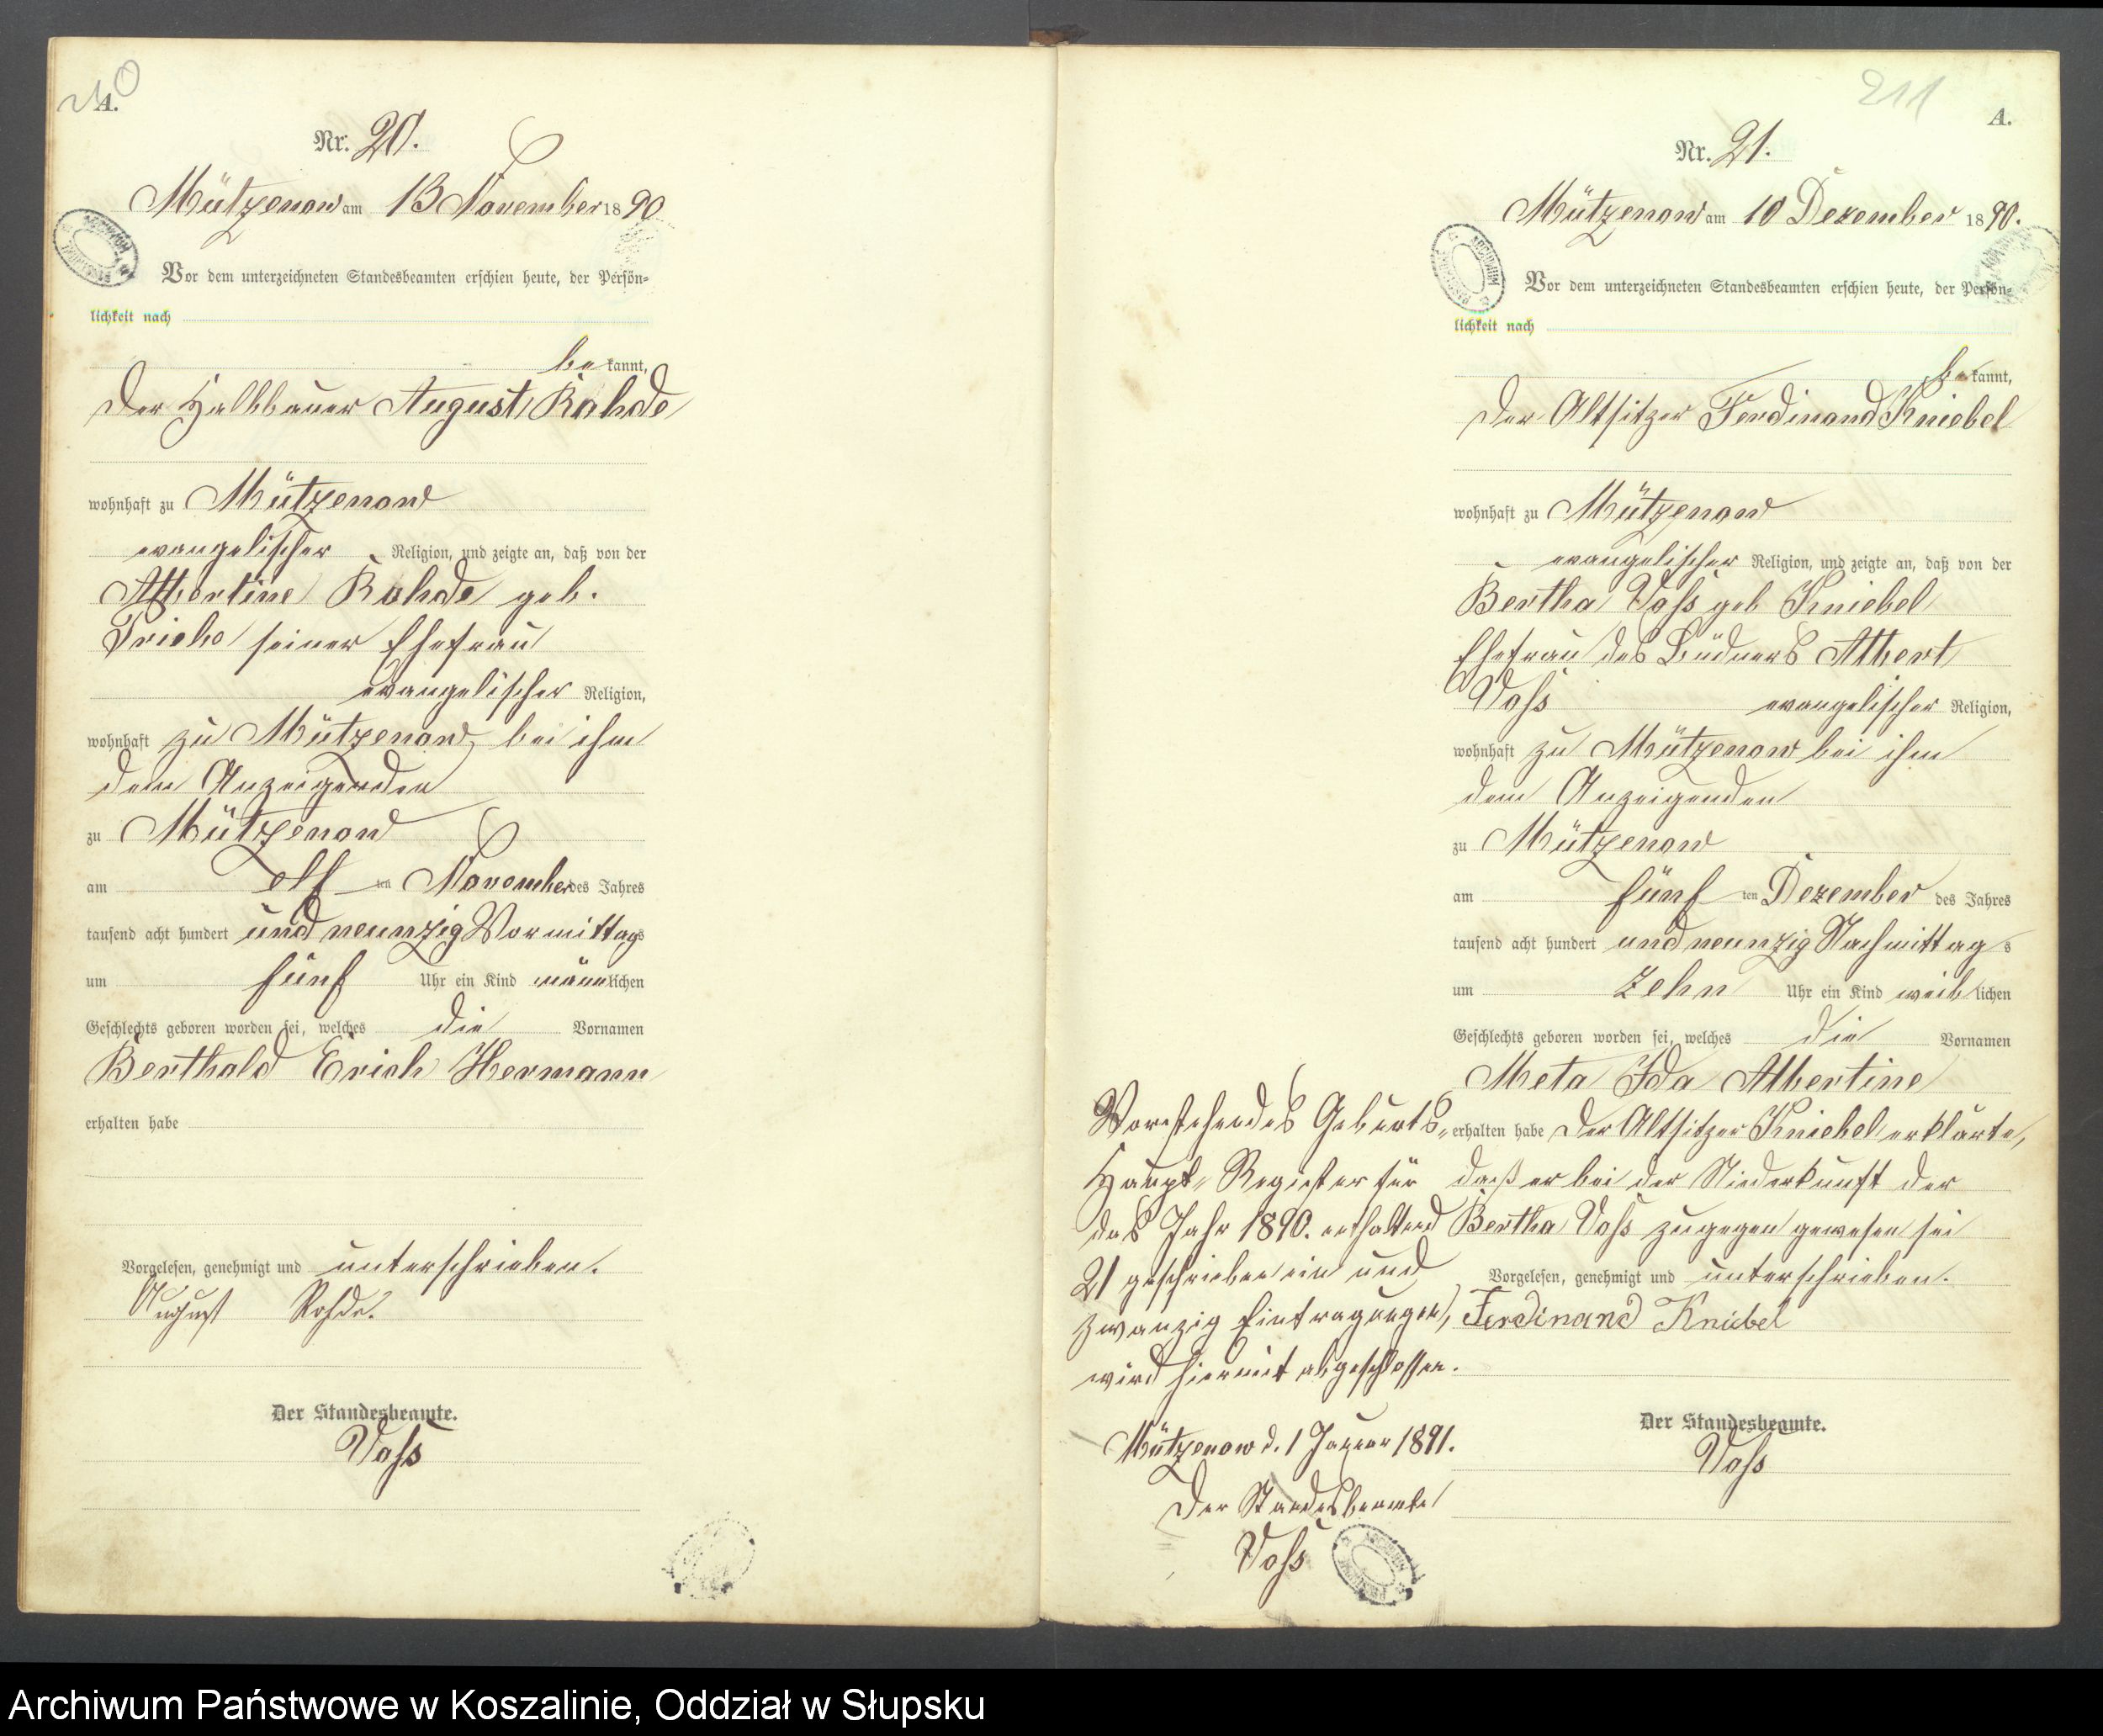 210
A.
Nr. 20.
Mützenow am 13 November 1890
Vor dem unterzeichneten Standesbeamten erschien heute, der Persön=
lichkeit nach
bekannt,
der Halbbauer August Rohde
wohnhaft zu Mützenow
evangelischer Religion, und zeigte an, daß von der
Albertine Rohde geb.
Priebe seiner Ehefrau
evangelischer Religion,
wohnhaft zu Mützenow, bei ihm
dem Anzeigenden
zu Mützenow
am elf ten November des Jahres
tausend acht hundert und neunzig Vormittags
um fünf Uhr ein Kind männlichen
Geschlechts geboren worden sei, welches die Vornamen
Berthold Erich Hermann
erhalten habe
Vorgelesen, genehmigt und unterschrieben.
August Rohde.
Der Standesbeamte.
Voss
211
A.
Nr. 21.
Mützenow am 10 Dezember 1890.
Vor dem unterzeichneten Standesbeamten erschien heute, der Persön=
lichkeit nach
bekannt,
der Altsitzer Ferdinand Kniebel
wohnhaft zu Mützenow
evangelischer Religion, und zeigte an, daß von der
Bertha Voss geb Kniebel
Ehefrau des Büdners Albert
Voss evangelischer Religion,
wohnhaft zu Mützenow bei ihm
dem Anzeigenden
zu Mützenow
am fünf ten Dezember des Jahres
tausend acht hundert und neunzig Nachmittags
um zehn Uhr ein Kind weiblichen
Geschlechts geboren worden sei, welches die Vornamen
Meta Ida Albertine
erhalten habe Der Altsitzer Kniebel erklärte,
daß er bei der Niederkunft der
Bertha Voss zugegen gewesen sei
Vorgelesen, genehmigt und unterschrieben.
Ferdinand Kniebel
Der Standesbeamte.
Voss
Vorstehendes Geburts=
Haupt=Register für
das Jahr 1890. enthaltend
21 geschrieben ein und
zwanzig Eintragungen,
wird hiermit abgeschlossen.
Mützenow d. 1 Januar 1891.
Der Standesbeamte
Voss
Archiwum Państwowe w Koszalinie, Oddział w Słupsku